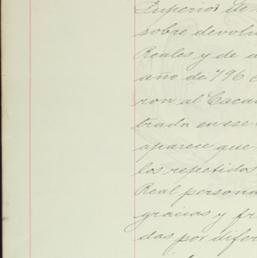 Superior de
sobre devolu
Reales y de a
año de 796 c
ron al Cacau
trada en ese
aparece que
los repetidos
Real persona
gracias y fr
das por difer